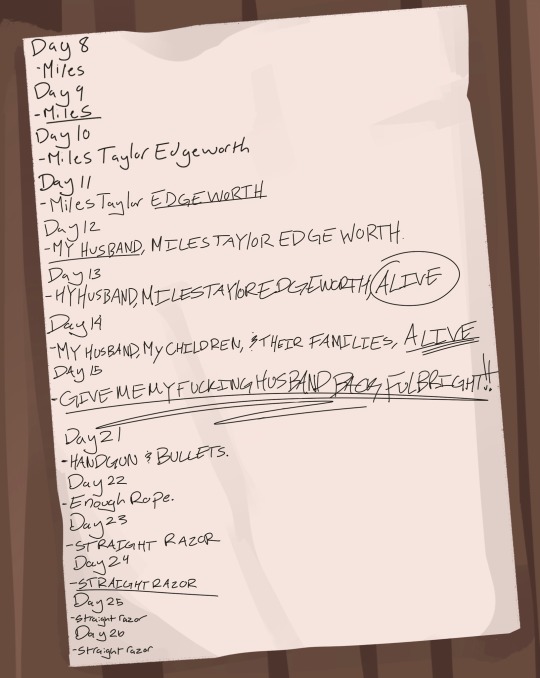 Day 8
-Miles
Day 9
-Miles
Day 10
-Miles Taylor Edgeworth
Day 11
-Miles Taylor EDGEWORTH
Day 12
-MY HUSBAND, MILES TAYLOR EDGEWORTH.
Day 13
-MY HUSBAND, MILES TAYLOR EDGEWORTH, ALIVE
Day 14
-MY HUSBAND, MY CHILDREN, & THEIR FAMILIES, ALIVE
DAy 15
-GIVE ME MY FUCKING HUSBAND BACK, FULBRIGHT!!
Day 21
-HANDGUN & BULLETS.
Day 22
-Enough Rope.
Day 23
-STRAIGHT RAZOR
Day 24
-STRAIGHT RAZOR
Day 25
-straight razor
Day 26
-straight razor